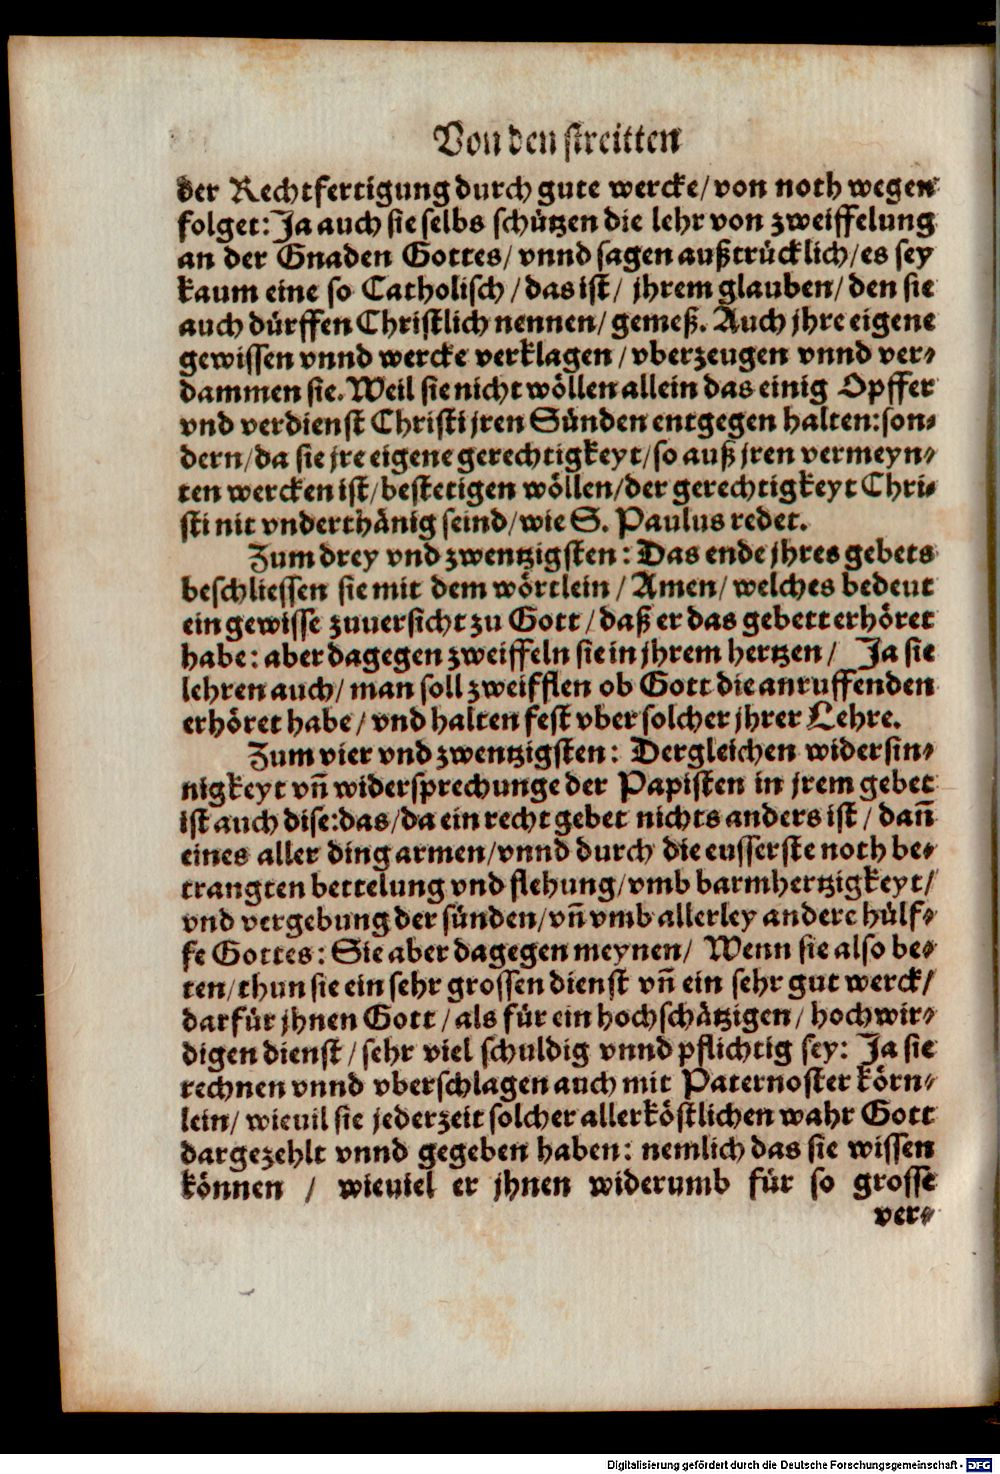 Von den streitten
der Rechtfertigung durch gute wercke/von noth wegen
folget: Ja auch sie selbs schützen die lehr von zweiffelung
an der Gnaden Gottes/ vnnd sagen außtrücklich/es sey
kaum eine so Catholisch/das ist/ jhrem glauben/den sie
auch dürffen Christlich nennen/gemeß. Auch jhre eigene
gewissen vnnd wercke verklagen/vberzeugen vnnd ver-
dammen sie. Weil sie nicht wöllen allein das einig Opffer
vnd verdienst Christi jren Sünden entgegen halten: son-
dern/da sie jre eigene gerechtigkeyt/so auß jren vermeyn-
ten wercken ist/bestetigen wöllen/der gerechtigkeyt Chri-
sti nit vnderthänig seind/wie S. Paulus redet.
Zum drey vnd zwentzigsten: Das ende jhres gebets
beschliessen sie mit dem wörtlein/Amen/welches bedeut
ein gewisse zuuersicht zu Gott/daß er das gebett erhöret
habe: aber dagegen zweiffeln sie in jhrem hertzen/ Ja sie
lehren auch/man soll zweifflen ob Gott die anruffenden
erhöret habe/vnd halten fest vber solcher jhrer Lehre.
Zum vier vnd zwentzigsten: Dergleichen widersin-
nigkeyt vn̄ widersprechunge der Papisten in jrem gebet
ist auch dise: das/da ein recht gebet nichts anders ist/ dan̄
eines aller ding armen/vnnd durch die eusserste noth be-
trangten bettelung vnd flehung/vmb barmhertzigkeyt/
vnd vergebung der sünden/vn̄ vmb allerley andere hülf-
fe Gottes: Sie aber dagegen meynen/ Wenn sie also be-
ten/thun sie ein sehr grossen dienst vn̄ ein sehr gut werck/
darfür jhnen Gott/als für ein hochschätzigen/hochwir-
digen dienst/sehr viel schuldig vnnd pflichtig sey: Ja sie
rechnen vnnd vberschlagen auch mit Paternoster körn-
lein/wieuil sie jederzeit solcher allerköstlichen wahr Gott
dargezehlt vnnd gegeben haben: nemlich das sie wissen
können / wieuiel er jhnen widerumb für so grosse
ver-
Digitalisierung gefördert durch die Deutsche Forschungsgemeinschaft - DFG